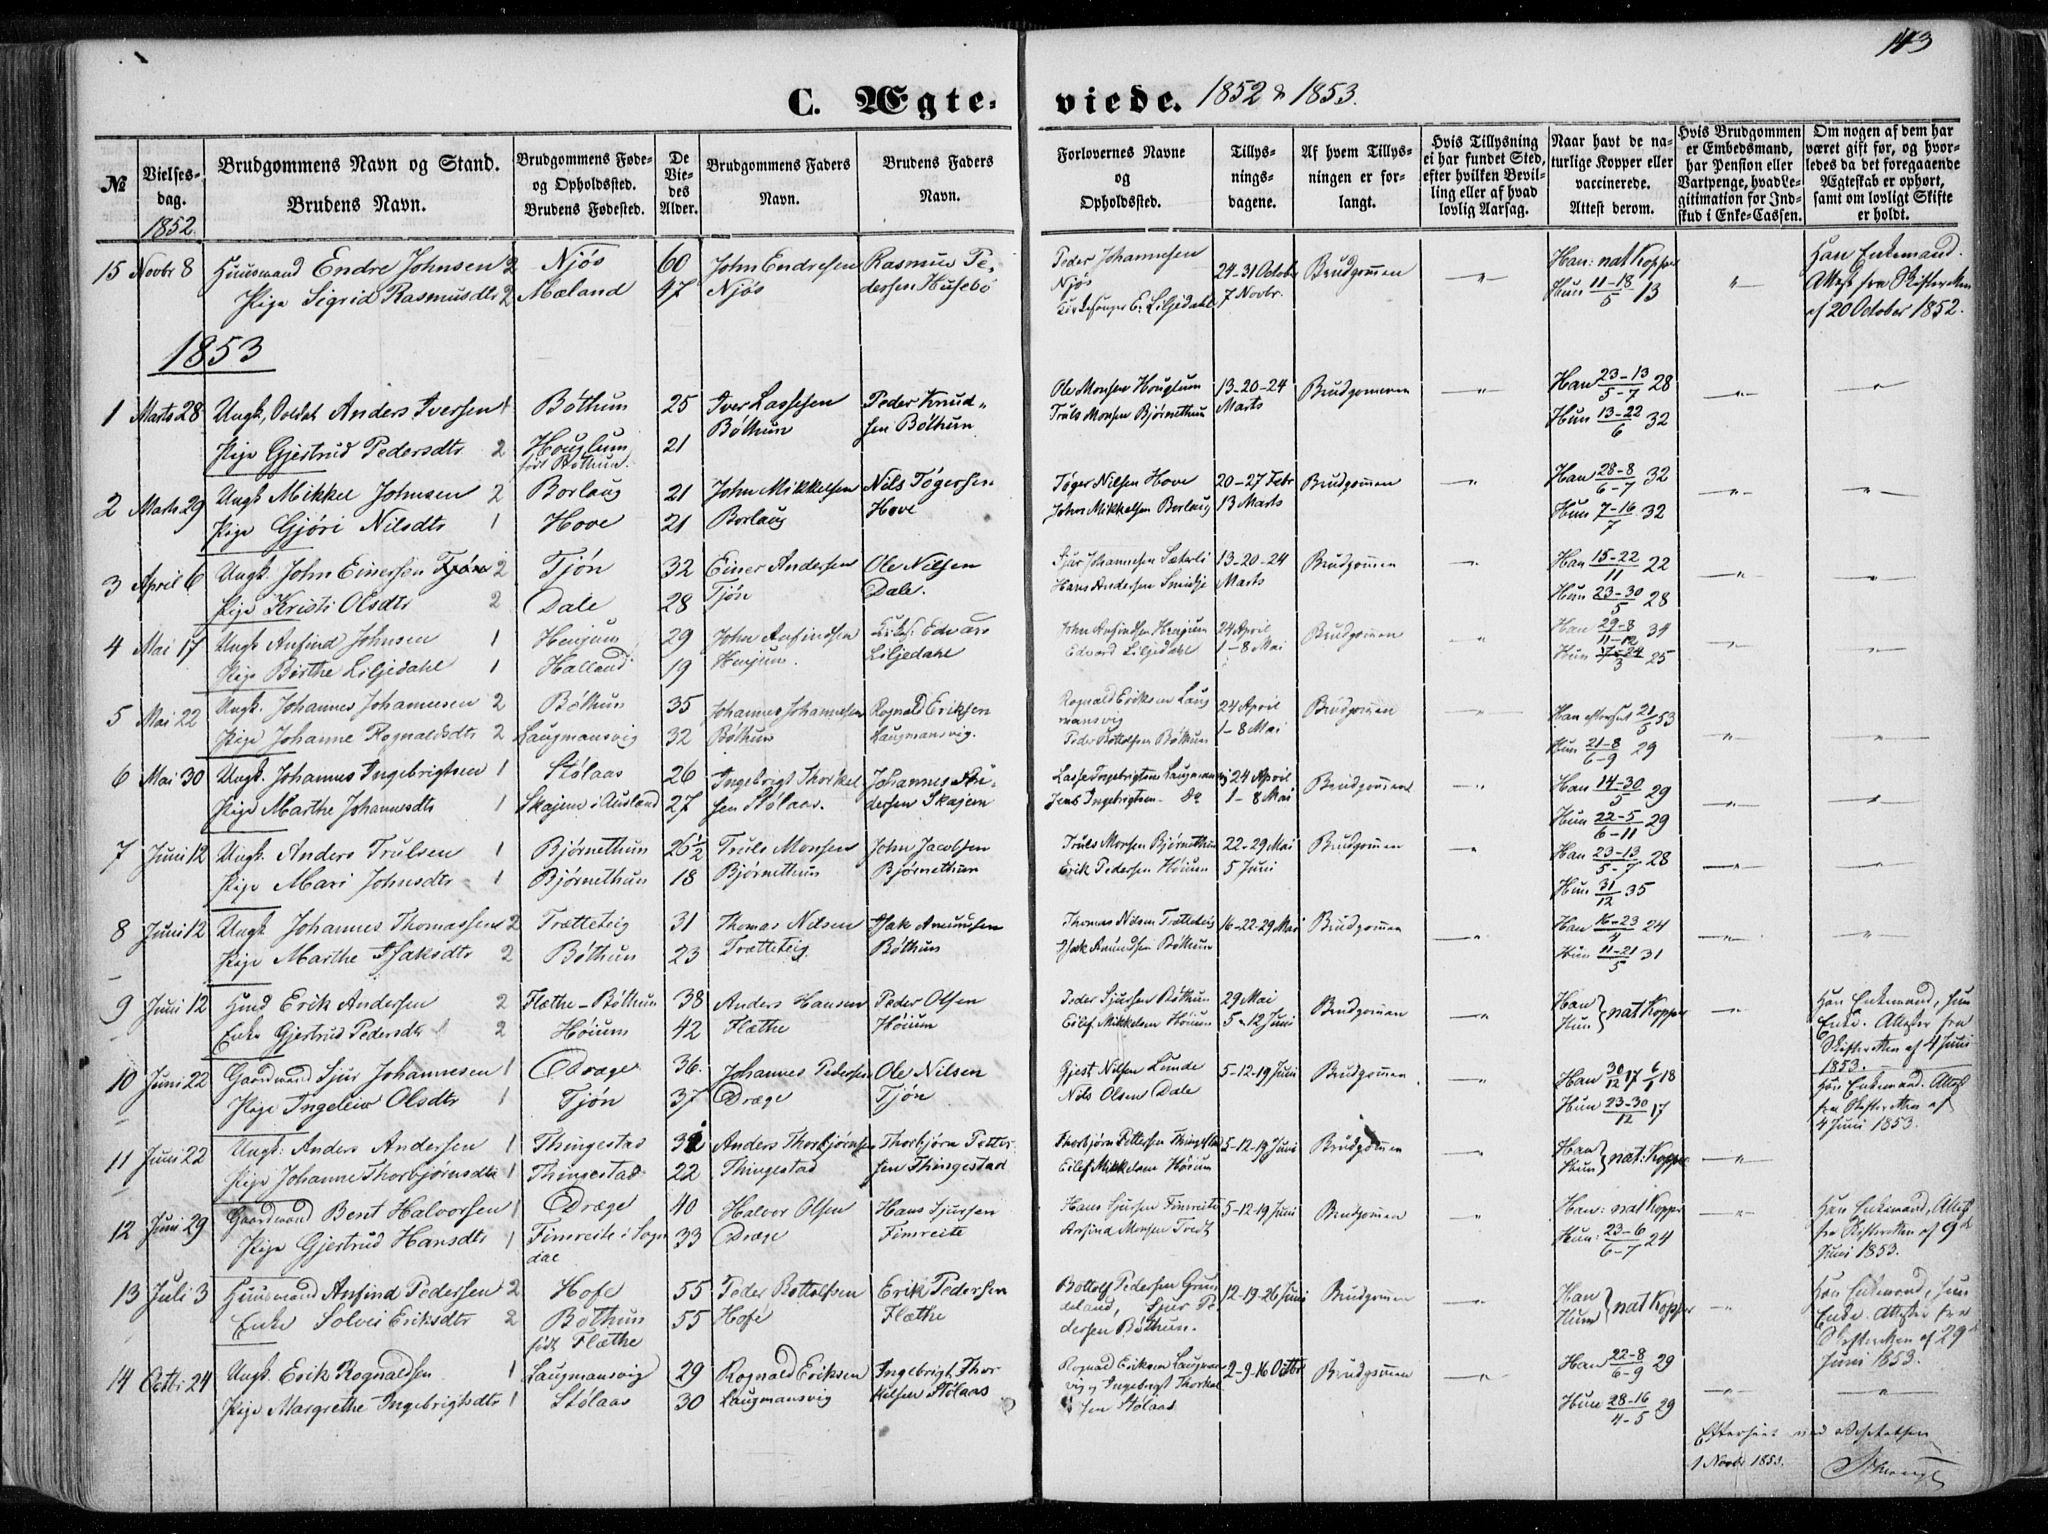 143
C. Ægteviede. 1852 & 1853.
№
Vielsesdag. 1852.
Brudgommens Navn og Stand. Brudens Navn.
Brudgommens Føde- og Opholdssted. Brudens Fødested.
De Viedes Alder.
Brudgommens Faders Navn.
Brudens Faders Navn.
Forlovernes Navne og Opholdssted.
Tillysningsdagene.
Af hvem Tillysningen er forlangt.
Hvis Tillysning ei har fundet Sted, efter hvilken Bevilling eller af hvad lovlig Aarsag.
Naar havt de naturlige Kopper eller vaccinerede. Attest derom.
Hvis Brudgommen er Embedsmand, har Pension eller Vartpenge, hvad Legitimation for Indskud i Enke-Cassen.
Om nogen af dem har været gift før, og hvorledes da det foregaaende Ægteskab er ophørt, samt om lovligt Skifte er holdt.
15 Novbr 8 Huusmand Endre Johnsen 2 Njøs 60 John Endresen Rasmus Pe- Peder Johannesen 24-31 Octobr Brudgommen " Han: nat Kopper " Han Enkemand.
Pige Sigrid Rasmusdtr 2 Mæland 47 Njøs dersen Husebø Njøs 7 Novbr. Hun 11-18/5 13 Attest fra Skifteretten
Kirkesanger E. Liljedahl af 20 October 1852.
1853
1 Marts 28 Ungk, Soldat Anders Iversen 1 Bøthun 25 Iver Lassesen Peder Knud- Ole Monsen Houglum 13-20-24 Brudgommen " Han 23-13/5-7 28 " "
Pige Gjertrud Pedersdtr 2 Houglum 21 Bøthun sen Bøthun Truls Monsen Bjørnethun Marts Hun 13-22/6 32
født Bøthun.
2 Marts 29 Ungk Mikkel Johnsen 2 Borlaug 21 John Mikkelsen Nils Tøgersen Tøger Nilsen Hove 20-27 Febr Brudgommen " Han 28-8/6-7 32 " "
Pige Gjøri Nilsdtr 1 Hove 21 Borlaug Hove John Mikkelsen Borlaug 13 Marts Hun 7-16/7 32
3 April 6 Ungk. John Einersen Tjøn 2 Tjøn 32 Einer Andersen Ole Nilsen Sjur Johannesen Sæterli 13-20-24 Brudgommen " Han 15-22/11 22 " "
Pige Kristi Olsdtr 2 Dale 28 Tjøn Dale. Hans Andersen Smidje Marts Hun 23-30/5 28
4 Mai 17 Ungk Anfind Johnsen 1 Henjum 29 John Anfindsen Edvard John Anfindsen Henjum 24 April Brudgommen " Han 29-8/11-12 34 " "
Pige Birthe Liljedahl 1 Halland 19 Henjum. Liljedahl Edvard Liljedahl 1-8 Mai Hun 17-24/3 25
5 Mai 22 Ungk. Johannes Johannesen 2 Bøthun 35 Johannes Johannesen Rognald Eriksen Rognald Eriksen Laug 24 April Brudgommen " Han 21/5 53 " "
Pige Johanne Rognaldsdtr 2 Laugmansvig 32 Bøthun Laugmansvig. mansvig 1-8 Mai Hun 21-8/6-9 29
Peder Bottolfsen Bøthun
6 Mai 30 Ungk. Johannes Ingebrigtsen 1 Stølaas 26 Ingebrigt Thorkel Johannes An- Lasse Ingebrigtsen Laugmansvig 24 April Brudgommen " Han 14-30/5 29 " "
Pige Marthe Johannesdtr 1 Skajem i Ausland 27 sen Stølaas. dersen Skajem Jens Ingebrigtsen do 1-8 Mai Hun 22-5/6-11 29
7 Juni 12 Ungk. Anders Trulsen 1 Bjørnethun 26½ Truls Monsen John Jacobsen Truls Monsen Bjørnethun 22-29 Mai Brudgommen " Han 23-13/5-7 28 " "
Pige Mari Johnsdtr 1 Bjørnethun 18 Bjørnethun Bjørnethun Erik Pedersen Høium 5 Juni Hun 31/12 35
8 Juni 12 Ungk Johannes Thomassen 2 Trætteteig 31 Thomas Nilsen Isak Amundsen Thomas Nilsen Trætteteig 16-22-29 Mai Brudgommen " Han 16-23/4 24 " "
Pige Marthe Isaksdtr 2 Bøthun 23 Trætteteig. Bøthun Isak Amundsen Bøthun Hun 11-21/5 31
9 Juni 12 Hmd Erik Andersen 2 Flæthe-Bøthun 38 Anders Hansen Peder Olsen Peder Sjursen Bøthun 29 Mai Brudgommen " Han Hun } nat Kopper " Han Enkemand, hun
Enke Gjertrud Pedersdtr 2 Høium 42 Flæthe Høium Eilef Mikkelsen Høium 5-12 Juni Enke. Attester fra
Skifteretten af 4 Juni
1853.
10 Juni 22 Gaardmand Sjur Johannesen 1 Dræge 36. Johannes Pedersen Ole Nilsen Gjest Nilsen Lunde 5-12-19 Juni Brudgommen " Han 30/12 17 6/1 18 Han Enkemand. Attest
Pige Ingeleiv Olsdtr 1 Tjøn 37 Dræge Tjøn Nils Olsen Dale Hun 23-30/12 17 fra Skifteretten af
4 Juni 1853.
11 Juni 22 Ungk: Anders Andersen 1 Thingestad Anders Thorbjørnsen Thorbjørn Petter- Thorbjørn Pettersen Thingestad 5-12-19 Juni Brudgommen " Han Hun } nat: Kopper "
Pige Johanne Thorbjørnsdtr 1 Thingestad 22 Thingestad sen Thingestad Eilef Mikkelsen Høium
12 Juni 29 Gaardmand Bent Halvorsen 1 Dræge 40 Halvor Olsen Hans Sjursen Hans Sjursen Fimreite 5-12-19 Juni Brudgommen " Han: nat Kopper " Han Enkemand, Attest
Pige Gjertrud Hansdtr 1 Fimreite i Sogn 33 Dræge Fimreite Anfind Monsen Tredt Hun: 23-6/6-7 24 fra Skifteretten af 9de
dal Juni 1853.
13 Juli 3 Huusmand Anfind Pedersen 2 Hofe 55 Peder Bottolfsen Erik Pedersen Bottolf Pedersen Grun 12-19-26 Juni Brudgommen " Han Hun } nat Kopper " Han Enkemand, hun
Enke Solvei Eriksdtr 2 Bøthun 55 Hofe Flæthe deland, Sjur Pe Enke. Attester fra
født Flæthe dersen Bøthun. Skifteretten af 29de
Juni 1853.
14 Octbr 24 Ungk. Erik Rognaldsen 1 Laugmansvig 29 Rognald Eriksen Ingebrigt Thor- Rognald Eriksen Laugman 2-9-16 Octbr Brudgommen " Han 22-8/6-9 29 " "
Pige Margrethe Ingebrigtsdtr 1 Stølaas 30 Laugmansvig kelsen Stølaas vig, Ingebrigt Thorkel Hun 28-16/4-5 29
sen Stølaas
Efterseet ved Visitatsen
1 Novbr 1853.